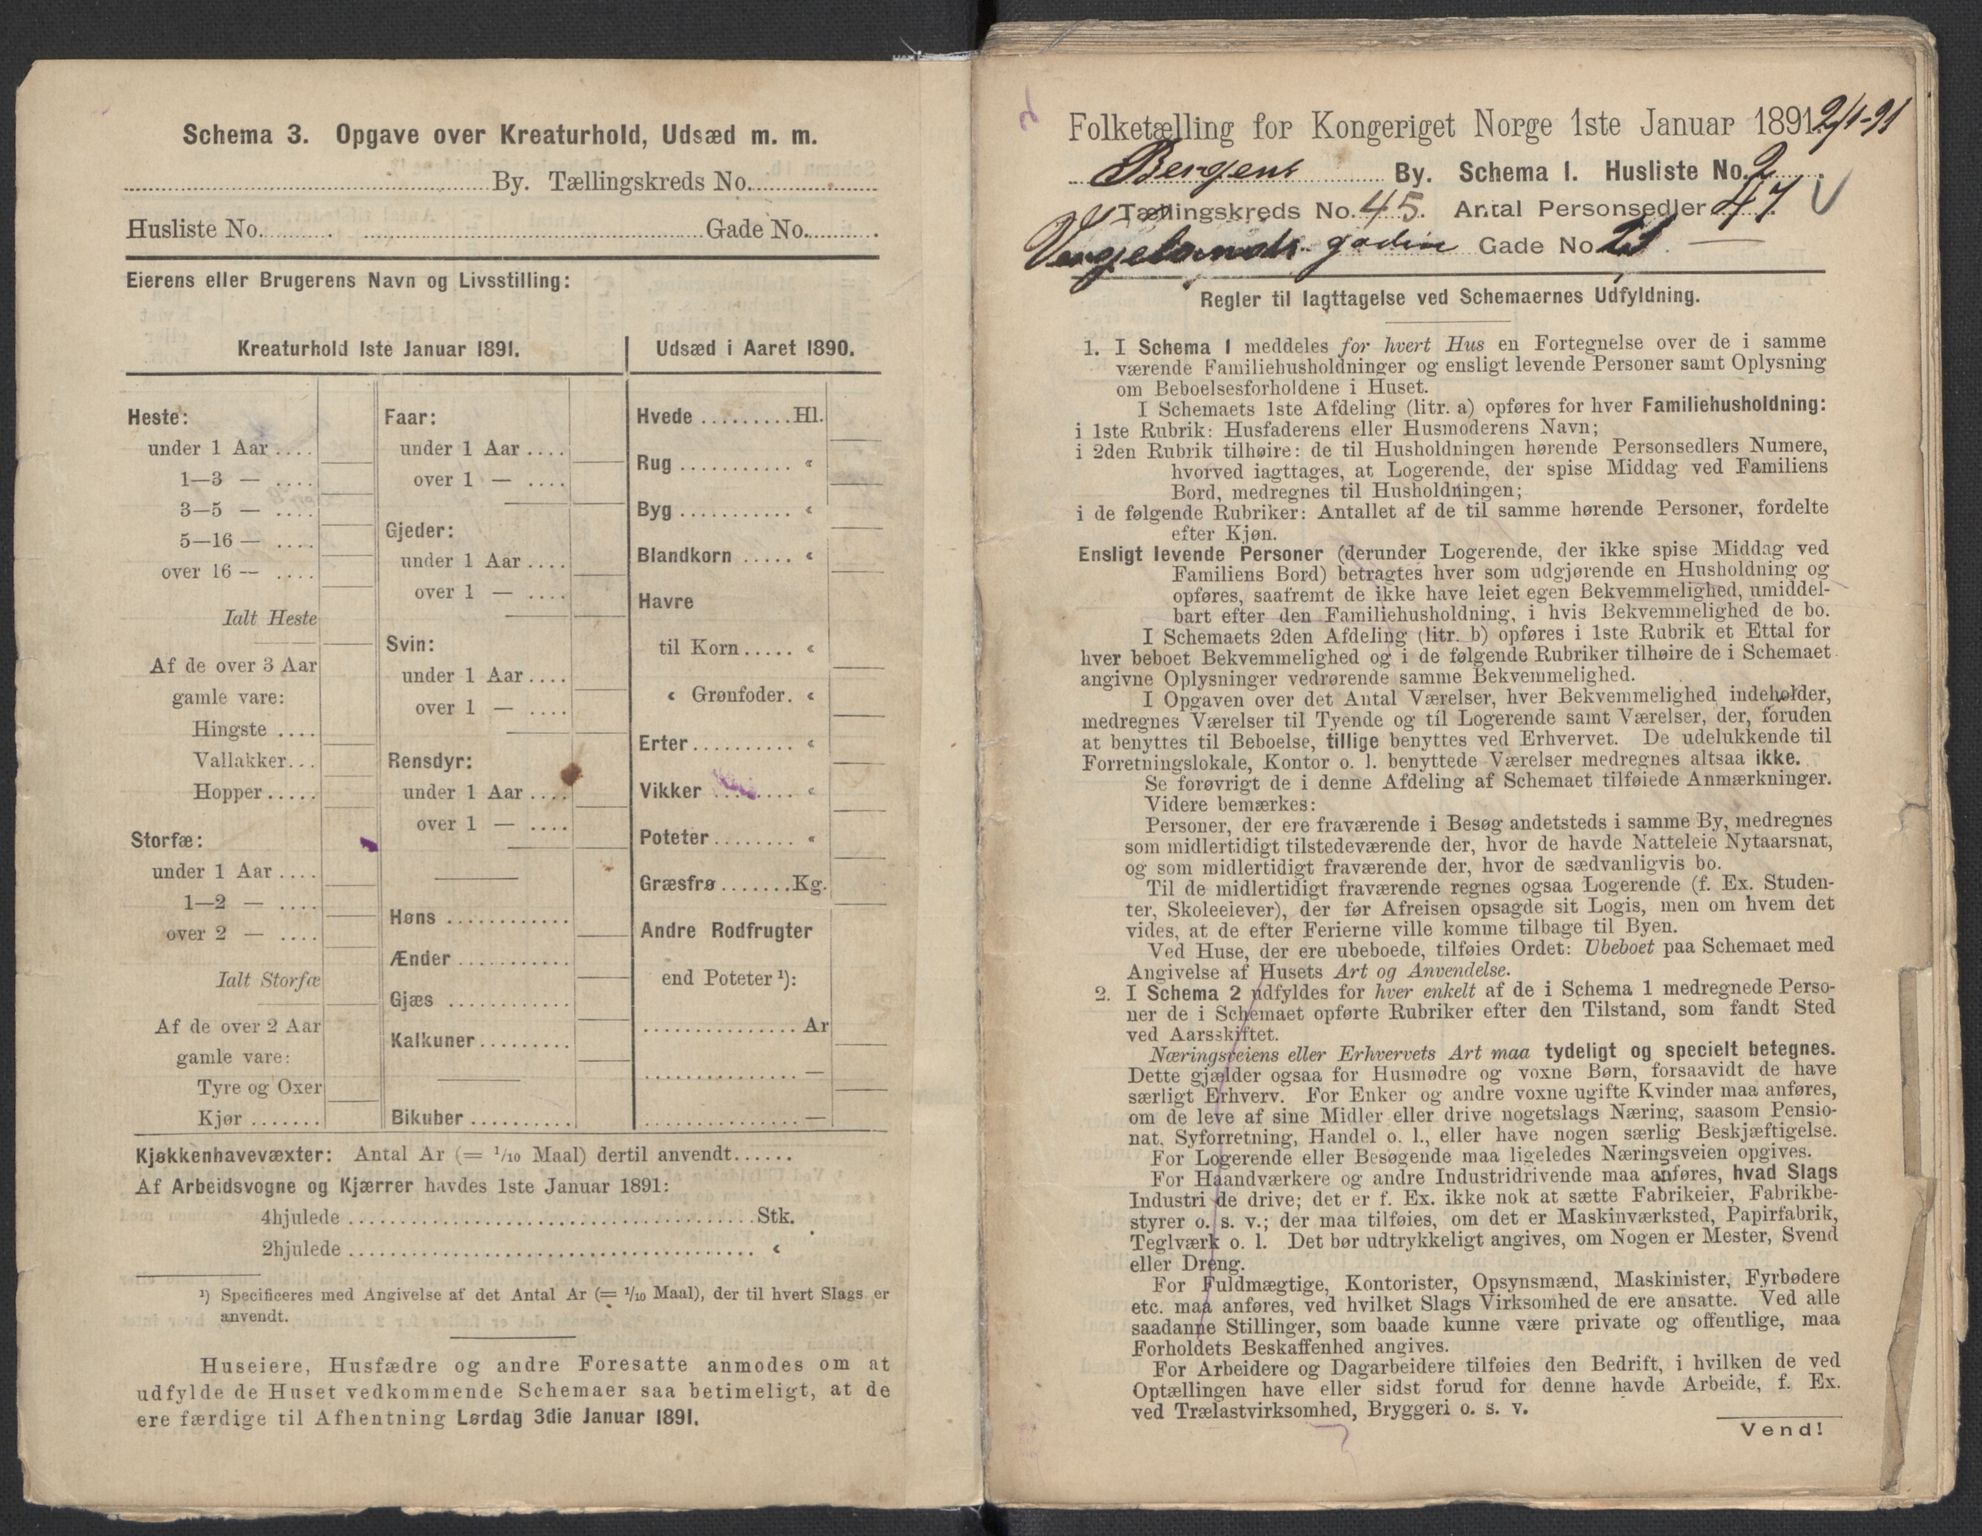 Schema 3. Opgave over Kreaturhold, Udsæd m. m.
By. Tællingskreds No.
Husliste No. Gade No.
Eierens eller Brugerens Navn og Livsstilling:
Kreaturhold 1ste Januar 1891.
Heste:
under 1 Aar
1—3 —
3—5 —
5—16 —
over 16 —
Ialt Heste
Af de over 3 Aar
gamle vare:
Hingste
Vallakker
Hopper
Storfæ:
under 1 Aar
1—2 —
over 2 —
Ialt Storfæ
Af de over 2 Aar
gamle vare:
Tyre og Oxer
Kjør
Faar:
under 1 Aar
over 1 —
Gjeder:
under 1 Aar
over 1 —
Svin:
under 1 Aar
over 1 —
Rensdyr:
under 1 Aar
over 1 —
Høns
Ænder
Gjæs
Kalkuner
Bikuber
Udsæd i Aaret 1890.
Hvede Hl.
Rug «
Byg «
Blandkorn «
Havre
til Korn «
« Grønfoder. «
Erter «
Vikker «
Poteter «
Græsfrø Kg.
Andre Rodfrugter
end Poteter ¹):
Ar
—
—
Kjøkkenhavevæxter: Antal Ar (= 1/10 Maal) dertil anvendt
Af Arbeidsvogne og Kjærrer havdes 1ste Januar 1891:
4hjulede Stk.
2hjulede «
¹) Specificeres med Angivelse af det Antal Ar (= 1/10 Maal), der til hvert Slags er
anvendt.
Huseiere, Husfædre og andre Foresatte anmodes om at
udfylde de Huset vedkommende Schemaer saa betimeligt, at de
ere færdige til Afhentning Lørdag 3die Januar 1891.
Folketælling for Kongeriget Norge 1ste Januar 1891. 2/1-91
Bergens By. Schema I. Husliste No. 2
Tællingskreds No. 45. Antal Personsedler 47
Gade No. 21
Regler til Iagttagelse ved Schemaernes Udfyldning.
1. I Schema 1 meddeles for hvert Hus en Fortegnelse over de i samme
værende Familiehusholdninger og ensligt levende Personer samt Oplysning
om Beboelsesforholdene i Huset.
I Schemaets 1ste Afdeling (litr. a) opføres for hver Familiehusholdning:
i 1ste Rubrik: Husfaderens eller Husmoderens Navn;
i 2den Rubrik tilhøire: de til Husholdningen hørende Personsedlers Numere,
hvorved iagttages, at Logerende, der spise Middag ved Familiens
Bord, medregnes til Husholdningen;
i de følgende Rubriker: Antallet af de til samme hørende Personer, fordelte
efter Kjøn.
Ensligt levende Personer (derunder Logerende, der ikke spise Middag ved
Familiens Bord) betragtes hver som udgjørende en Husholdning og
opføres, saafremt de ikke have leiet egen Bekvemmelighed, umiddel-
bart efter den Familiehusholdning, i hvis Bekvemmelighed de bo.
I Schemaets 2den Afdeling (litr. b) opføres i 1ste Rubrik et Ettal for
hver beboet Bekvemmelighed og i de følgende Rubriker tilhøire de i Schemaet
angivne Oplysninger vedrørende samme Bekvemmelighed.
I Opgaven over det Antal Værelser, hver Bekvemmelighed indeholder,
medregnes Værelser til Tyende og til Logerende samt Værelser, der, foruden
at benyttes til Beboelse, tillige benyttes ved Erhvervet. De udelukkende til
Forretningslokale, Kontor o. l. benyttede Værelser medregnes altsaa ikke.
Se forøvrigt de i denne Afdeling af Schemaet tilføiede Anmærkninger.
Videre bemærkes:
Personer, der ere fraværende i Besøg andetsteds i samme By, medregnes
som midlertidigt tilstedeværende der, hvor de havde Natteleie Nytaarsnat,
og som midlertidigt fraværende der, hvor de sædvanligvis bo.
Til de midlertidigt fraværende regnes ogsaa Logerende (f. Ex. Studen-
ter, Skoleelever), der før Afreisen opsagde sit Logis, men om hvem det
vides, at de efter Ferierne ville komme tilbage til Byen.
Ved Huse, der ere ubeboede, tilføies Ordet: Ubeboet paa Schemaet med
Angivelse af Husets Art og Anvendelse.
2. I Schema 2 udfyldes for hver enkelt af de i Schema 1 medregnede Perso-
ner de i Schemaet opførte Rubriker efter den Tilstand, som fandt Sted
ved Aarsskiftet.
Næringsveiens eller Erhvervets Art maa tydeligt og specielt betegnes.
Dette gjælder ogsaa for Husmødre og voxne Børn, forsaavidt de have
særligt Erhverv. For Enker og andre voxne ugifte Kvinder maa anføres,
om de leve af sine Midler eller drive nogetslags Næring, saasom Pensio-
nat, Syforretning, Handel o. l., eller have nogen særlig Beskjæftigelse.
For Logerende eller Besøgende maa ligeledes Næringsveien opgives.
For Haandværkere og andre Industridrivende maa anføres, hvad Slags
Industri de drive; det er f. Ex. ikke nok at sætte Fabrikeier, Fabrikbe-
styrer o. s. v.; der maa tilføies, om det er Maskinværksted, Papirfabrik,
Teglværk o. l. Det bør udtrykkeligt angives, om Nogen er Mester, Svend
eller Dreng.
For Fuldmægtige, Kontorister, Opsynsmænd, Maskinister, Fyrbødere
etc. maa anføres, ved hvilket Slags Virksomhed de ere ansatte. Ved alle
saadanne Stillinger, som baade kunne være private og offentlige, maa
Forholdets Beskaffenhed angives.
For Arbeidere og Dagarbeidere tilføies den Bedrift, i hvilken de ved
Optællingen have eller sidst forud for denne havde Arbeide, f. Ex.
ved Trælastvirksomhed, Bryggeri o. s. v.
Vend!